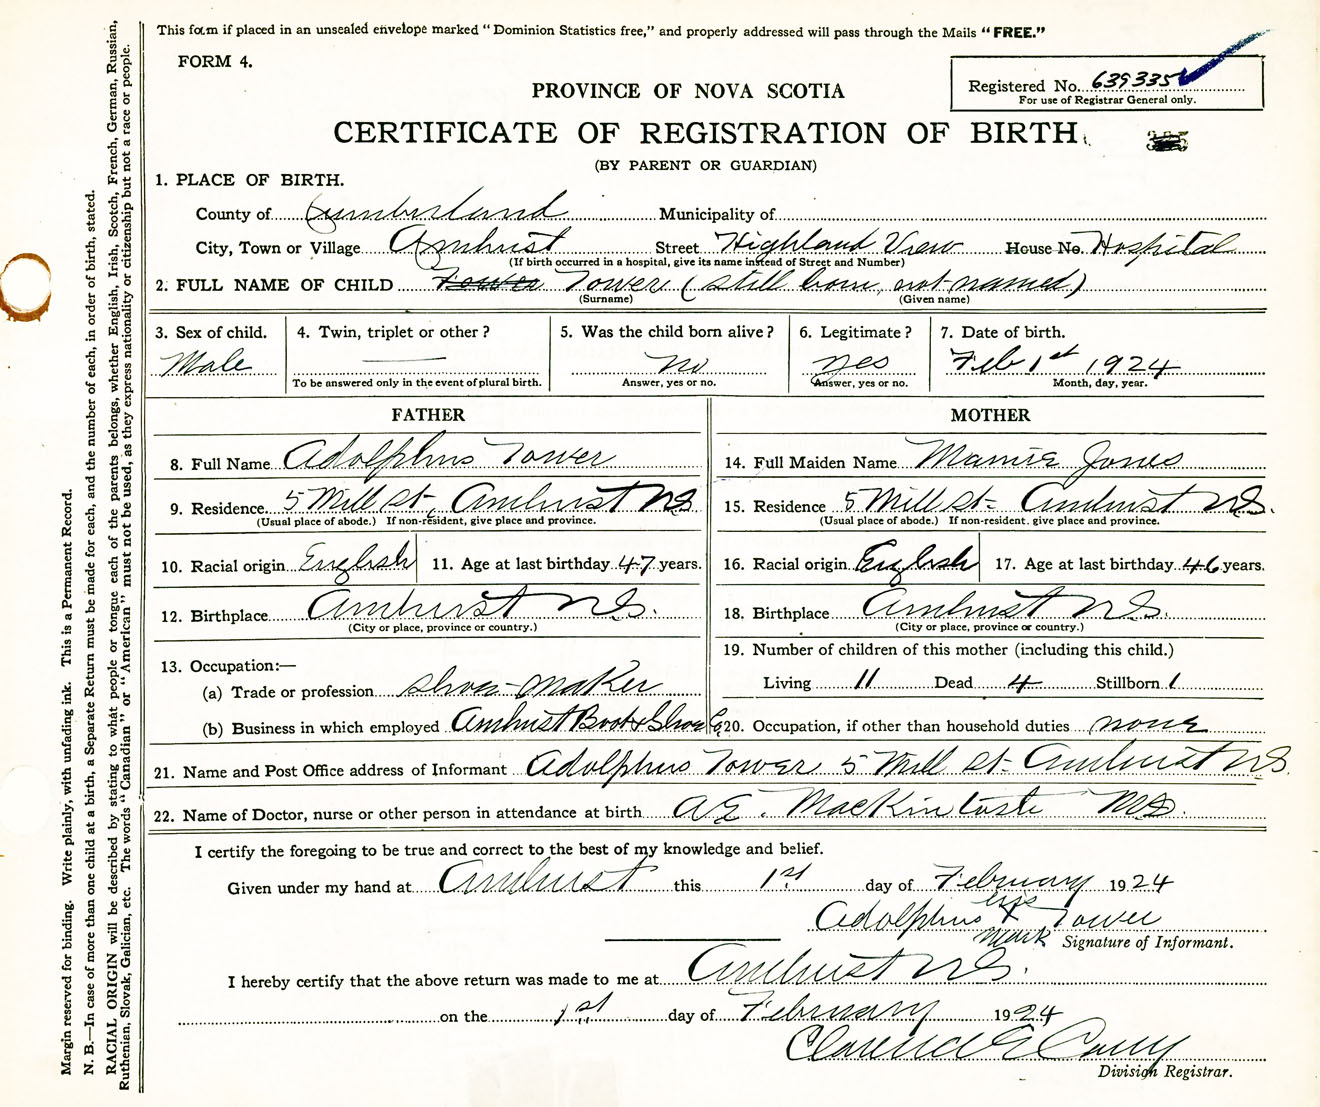 This form if placed in an unsealed envelope marked "Dominion Statistics free," and properly addressed will pass through the Mails "FREE."
FORM 4.
Registered No. 639335
For use of Registrar General only.
PROVINCE OF NOVA SCOTIA
CERTIFICATE OF REGISTRATION OF BIRTH
(BY PARENT OR GUARDIAN)
1. PLACE OF BIRTH.
County of Cumberland Municipality of
City, Town or Village Amherst Street Highland View House No. Hospital
(If birth occurred in a hospital, give its name instead of Street and Number)
2. FULL NAME OF CHILD Tower Tower (still born, not named)
(Surname) (Given name)
3. Sex of child. 4. Twin, triplet or other? 5. Was the child born alive? 6. Legitimate? 7. Date of birth.
Male no yes Feb 1st 1924
To be answered only in the event of plural birth. Answer, yes or no. Answer, yes or no. Month, day, year.
FATHER MOTHER
8. Full Name Adolphus Tower 14. Full Maiden Name Mamie Jones
9. Residence. 5 Mill St, Amherst NS 15. Residence 5 Mill St- Amherst N.S.
(Usual place of abode.) If non-resident, give place and province. (Usual place of abode.) If non-resident. give place and province.
10. Racial origin English 11. Age at last birthday 47 years. 16. Racial origin English 17. Age at last birthday 46 years.
12. Birthplace Amherst N.S. 18. Birthplace Amherst N.S.
(City or place, province or country.) (City or place, province or country.)
13. Occupation:— 19. Number of children of this mother (including this child.)
(a) Trade or profession shoe-maker Living 11 Dead 4 Stillborn 1
(b) Business in which employed Amherst Boot & Shoe Co 20. Occupation, if other than household duties none
21. Name and Post Office address of Informant Adolphus Tower 5 Mill St- Amherst N.S.
22. Name of Doctor, nurse or other person in attendance at birth A.E. MacKintosh M.D.
I certify the foregoing to be true and correct to the best of my knowledge and belief.
Given under my hand at Amherst this 1st day of February 1924
his
Adolphus X Tower
mark Signature of Informant.
I hereby certify that the above return was made to me at Amherst N.S.
on the 1st day of February 1924
Clarence E Casey
Division Registrar.
Margin reserved for binding. Write plainly, with unfading ink. This is a Permanent Record.
N. B.—In case of more than one child at a birth, a Separate Return must be made for each, and the number of each, in order of birth, stated.
RACIAL ORIGIN will be described by stating to what people or tongue each of the parents belongs, whether English, Irish, Scotch, French, German, Russian,
Ruthenian, Slovak, Galician, etc. The words "Canadian" or "American" must not be used, as they express nationality or citizenship but not a race or people.